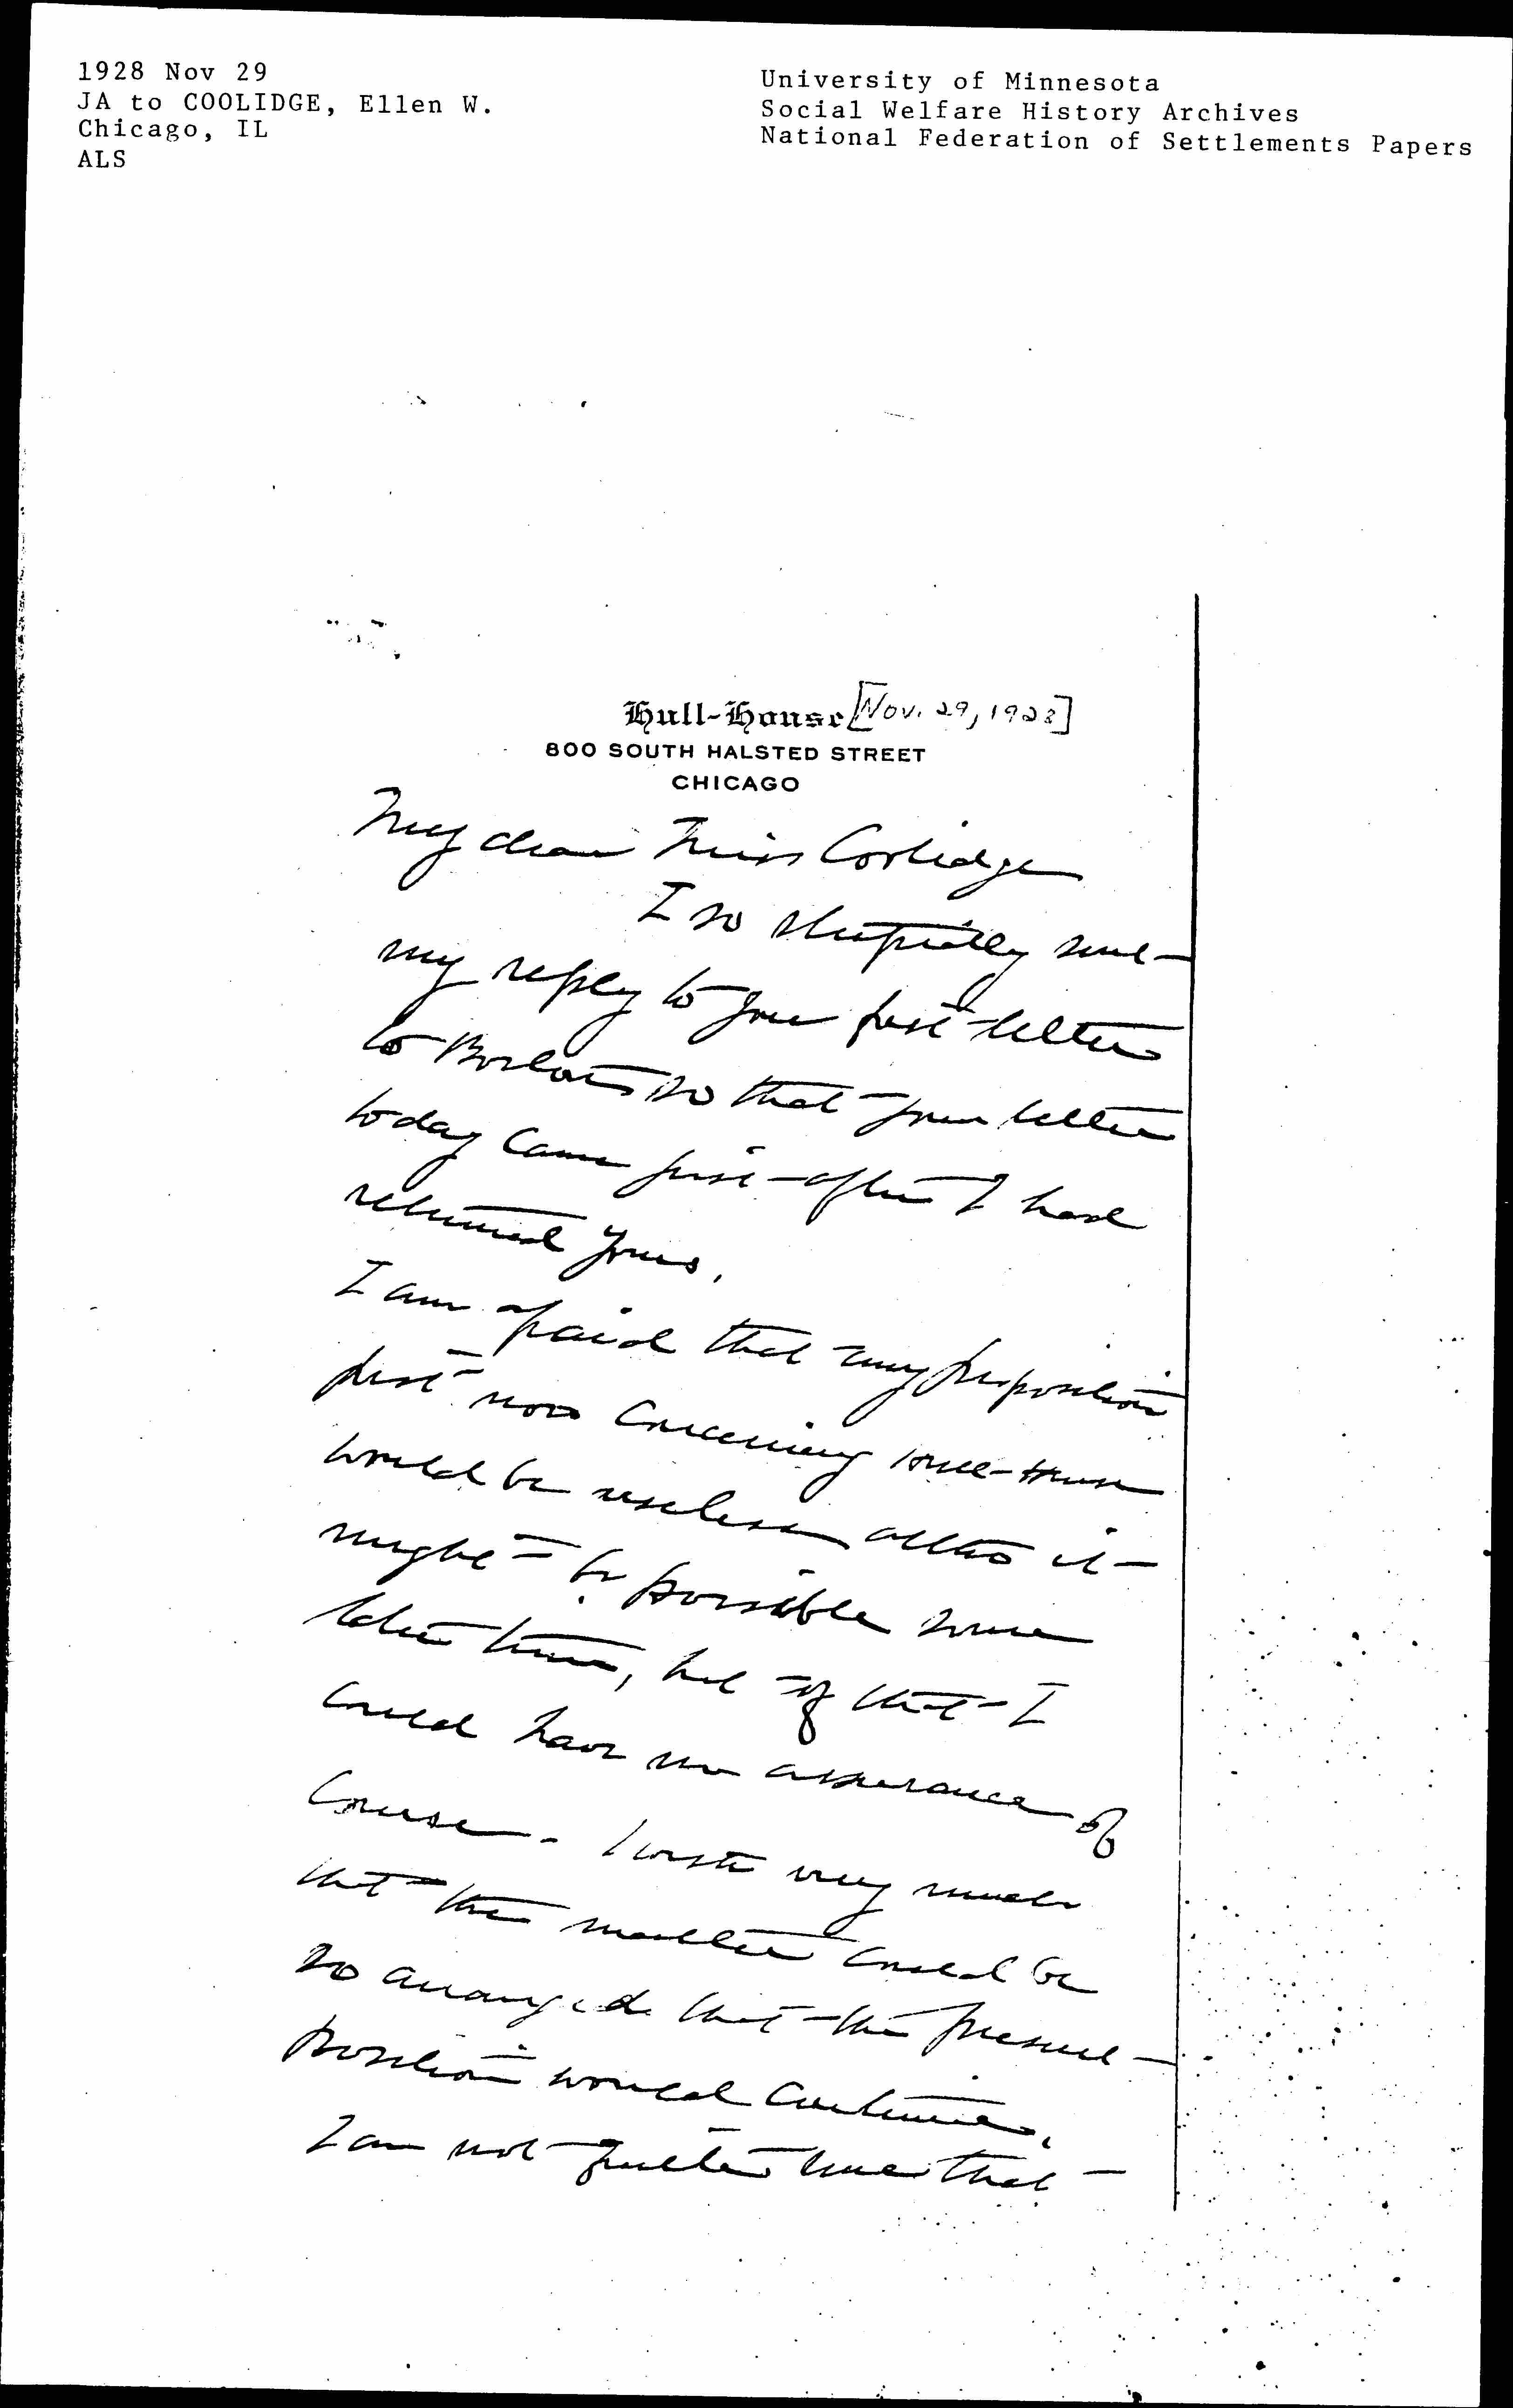 1928 Nov 29
JA to COOLIDGE, Ellen W.
Chicago, IL
ALS
University of Minnesota
Social Welfare History Archives
National Federation of Settlements Papers
Hull-House [Nov. 29, 1928]
800 SOUTH HALSTED STREET
CHICAGO
My dear Miss Coolidge
I so stupidly sent
my reply to your first letter
to Boston so that your letter
today came just after I had
returned yours.
I am afraid that any proposition
just now concerning Hull-House
would be useless altho it
might be possible some
later time, but of that I
could have no assurance of
course. I wish very much
that the matter could be
so arranged that the present
position would continue.
I am not quite sure that